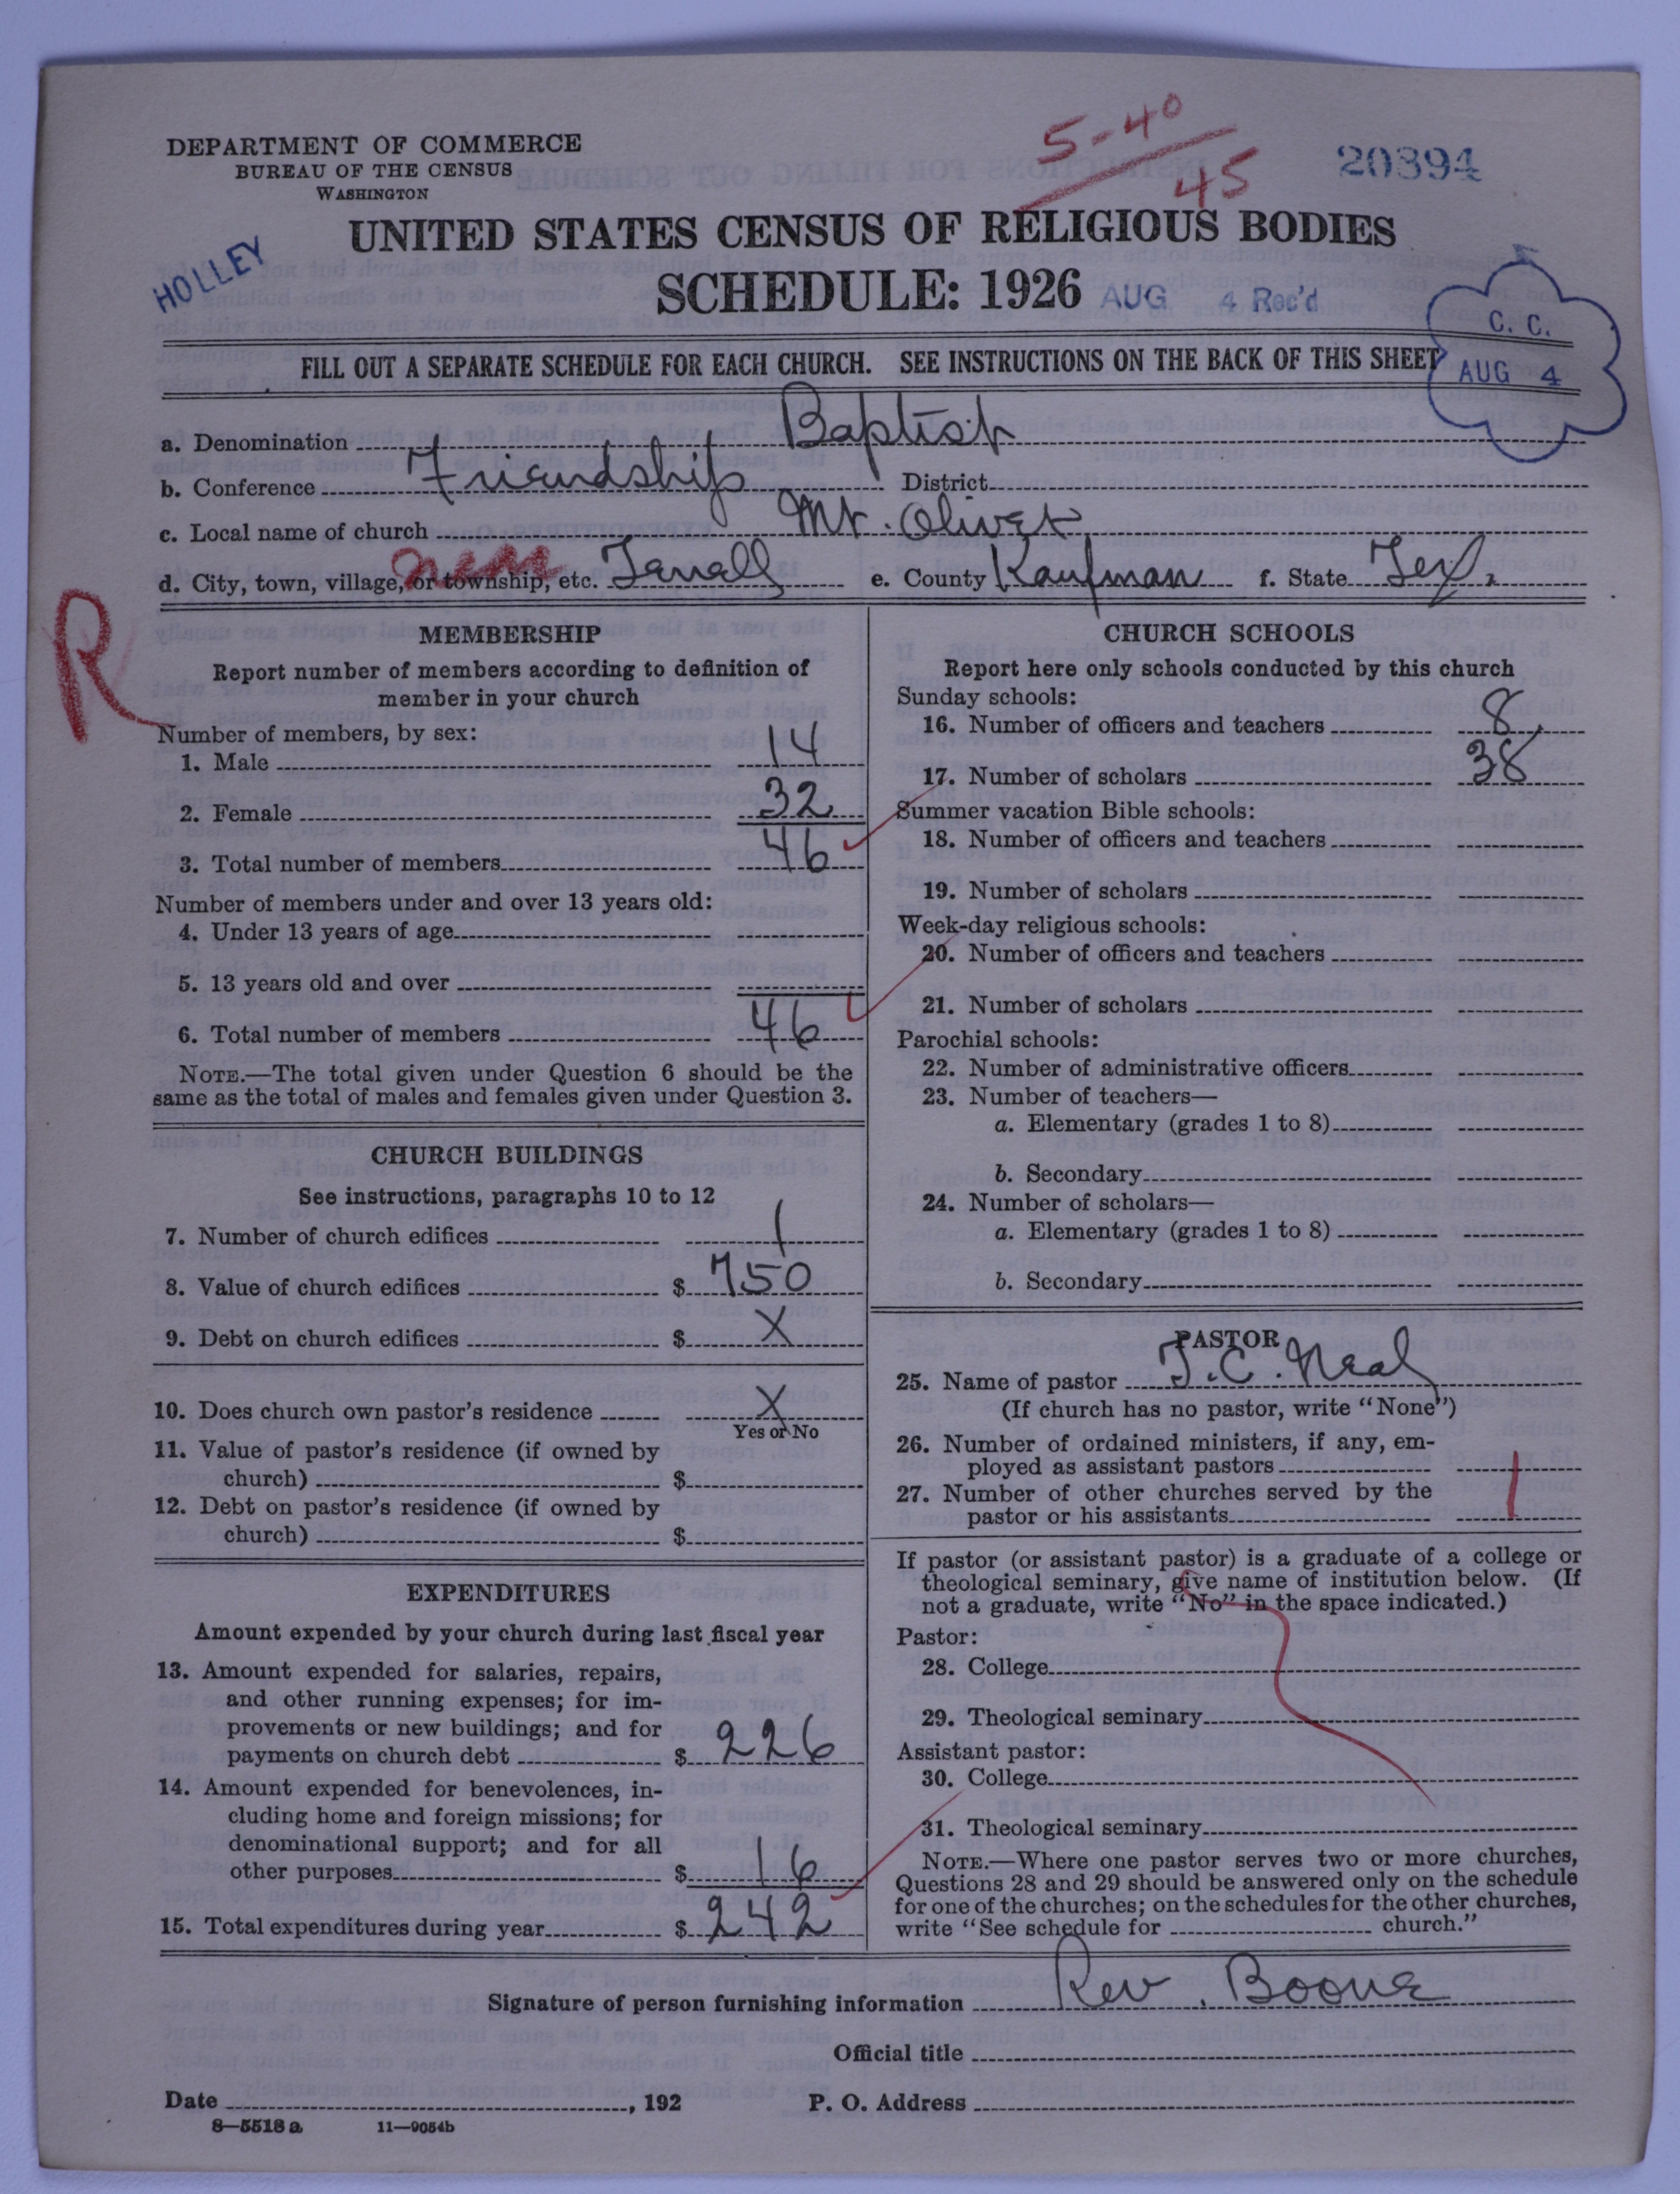 DEPARTMENT OF COMMERCE
BUREAU OF THE CENSUS
WASHINGTON
5-40
45
20394
HOLLEY
UNITED STATES CENSUS OF RELIGIOUS BODIES
SCHEDULE: 1926
AUG 4 Rec'd
C. C.
AUG 4
FILL OUT A SEPARATE SCHEDULE FOR EACH CHURCH. SEE INSTRUCTIONS ON THE BACK OF THIS SHEET
a. Denomination Baptist
b. Conference Friendship District
c. Local name of church Mt. Olivet
d. City, town, village, or township, etc. near Terrell e. County Kaufman f. State Tex.
R
MEMBERSHIP
Report number of members according to definition of
member in your church
Number of members, by sex:
1. Male 14
2. Female 32
3. Total number of members 46
Number of members under and over 13 years old:
4. Under 13 years of age
5. 13 years old and over
6. Total number of members 46
NOTE.—The total given under Question 6 should be the
same as the total of males and females given under Question 3.
CHURCH BUILDINGS
See instructions, paragraphs 10 to 12
7. Number of church edifices 1
8. Value of church edifices $ 750
9. Debt on church edifices $ X
10. Does church own pastor's residence X
Yes or No
11. Value of pastor's residence (if owned by
church) $
12. Debt on pastor's residence (if owned by
church) $
EXPENDITURES
Amount expended by your church during last fiscal year
13. Amount expended for salaries, repairs,
and other running expenses; for im-
provements or new buildings; and for
payments on church debt $ 226
14. Amount expended for benevolences, in-
cluding home and foreign missions; for
denominational support; and for all
other purposes $ 16
15. Total expenditures during year $ 242
CHURCH SCHOOLS
Report here only schools conducted by this church
Sunday schools:
16. Number of officers and teachers 8
17. Number of scholars 38
Summer vacation Bible schools:
18. Number of officers and teachers
19. Number of scholars
Week-day religious schools:
20. Number of officers and teachers
21. Number of scholars
Parochial schools:
22. Number of administrative officers
23. Number of teachers—
a. Elementary (grades 1 to 8)
b. Secondary
24. Number of scholars—
a. Elementary (grades 1 to 8)
b. Secondary
PASTOR
25. Name of pastor J. C. Neal
(If church has no pastor, write "None")
26. Number of ordained ministers, if any, em-
ployed as assistant pastors
27. Number of other churches served by the
pastor or his assistants 1
If pastor (or assistant pastor) is a graduate of a college or
theological seminary, give name of institution below. (If
not a graduate, write "No" in the space indicated.)
Pastor:
28. College
29. Theological seminary
Assistant pastor:
30. College
31. Theological seminary
NOTE.—Where one pastor serves two or more churches,
Questions 28 and 29 should be answered only on the schedule
for one of the churches; on the schedules for the other churches,
write "See schedule for church."
Signature of person furnishing information Rev. Boone
Official title
Date , 192 P. O. Address
8—5518a 11—9054b